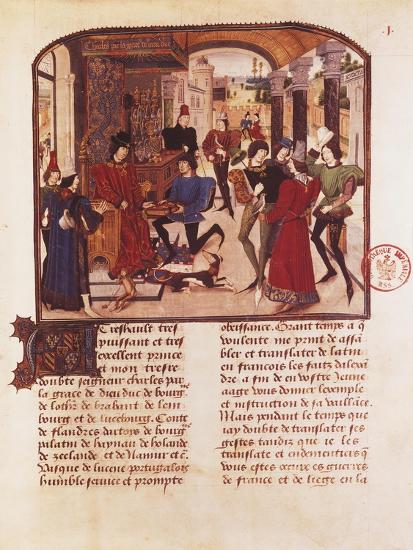 Charles par la grace de dieu duc
J.
BIBLIOTHEQUE IMPERIALE
MSS.
Treshault tres
puissant et tres
excellent prince
et mon tresre
doubte seigneur charles par
la grace de dieu duc de bourg
de lothr de brabant de lem
bourg et de lucebourg. Conte
de flandres dartoys de bourg
palatin de haynau de holande
de zeelande et de Namur etc
Vasque de lucene portugalois
humble service et prompte
obeissance. Grant temps a q̃
voulente me print de assa
bler et translater de latin
en francois les faitz dalexã
dre a fin de en vostre Jeune
aage vous donner lexemple
et instruction de sa vaillãce.
Mais pendant le temps que
iay doubte de translater ses
gestes tandiz que ie les
translate et endementiers q̃
vous estes occupe es guerres
de france et de liege en la